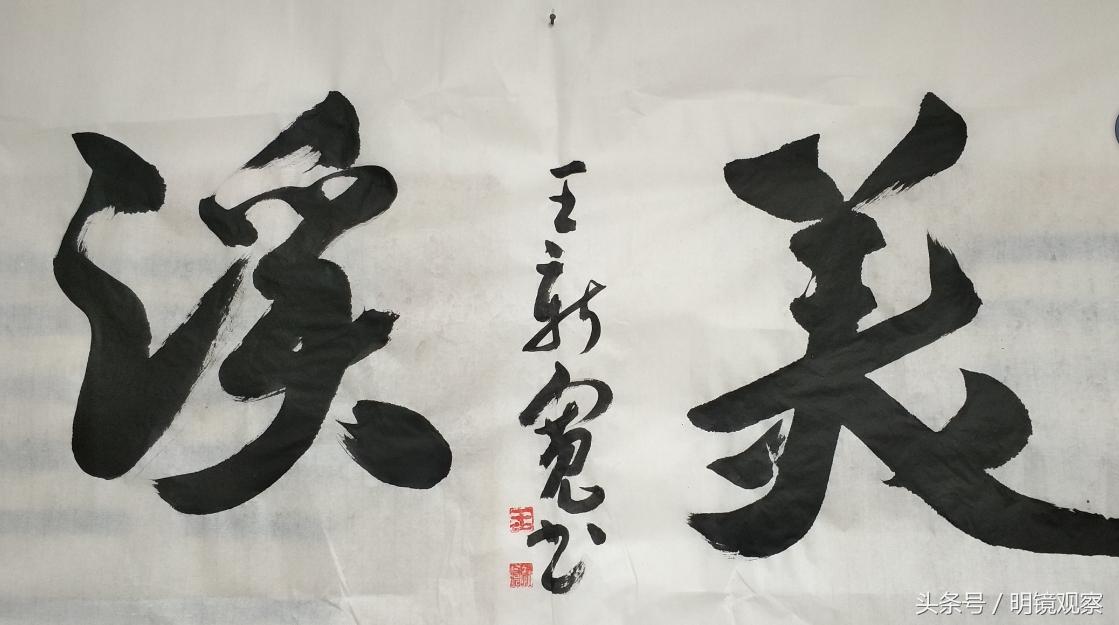 美溪
王新寬书
头条号 / 明镜观察